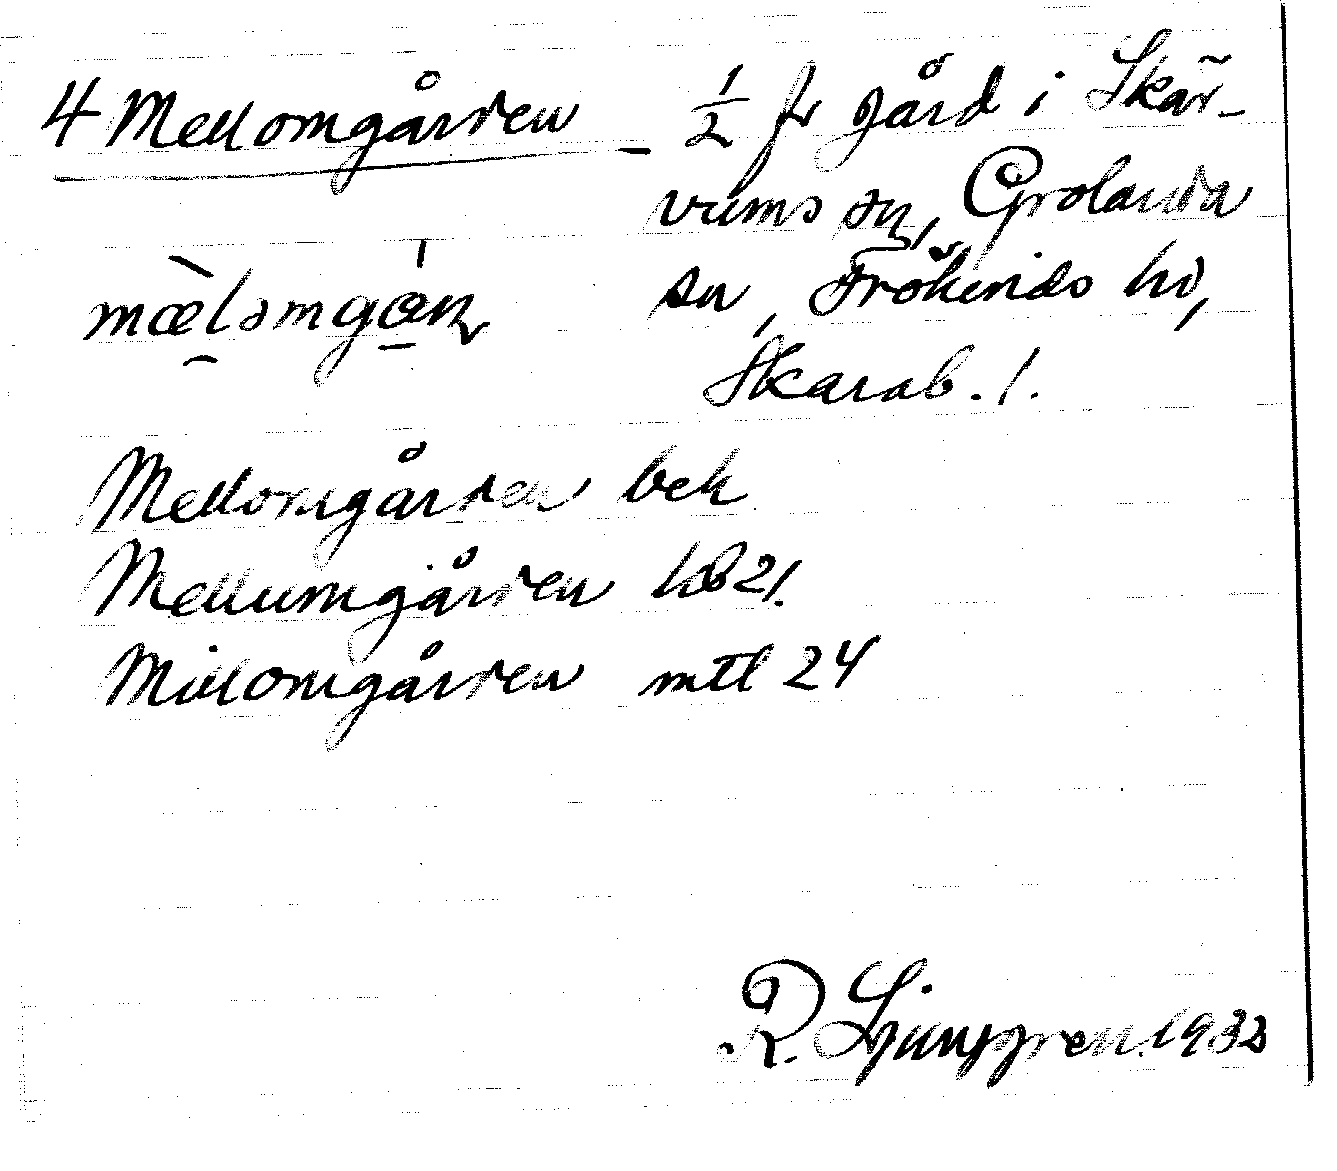 4 Mellomgården – ½ fr gård i Skär-
vums sn, Grolanda
sn, Frökinds hd,
Skarab. l.
Mellomgården bek
Mellumgården hd 21.
Millomgården mtl 24
R. Ljunggren 1933